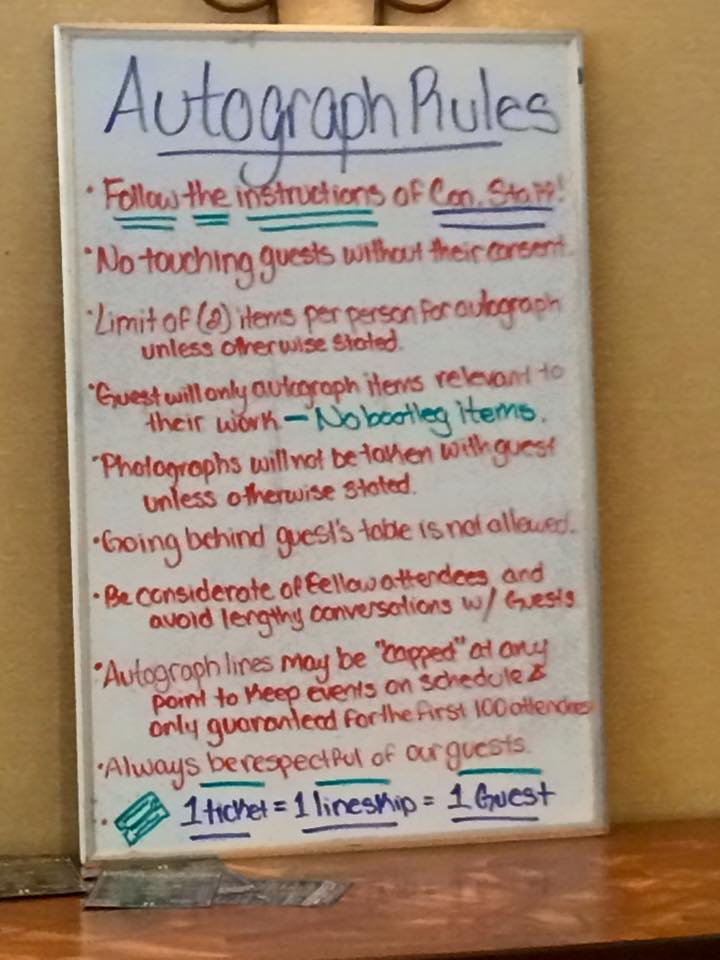 Autograph Rules
• Follow the instructions of Con. Staff!
• No touching guests without their consent.
• Limit of (2) items per person for autograph
unless otherwise stated.
• Guest will only autograph items relevant to
their work - No bootleg items.
• Photographs will not be taken with guest
unless otherwise stated.
• Going behind guest's table is not allowed.
• Be considerate of fellow attendees and
avoid lengthy conversations w/ Guests
• Autograph lines may be "capped" at any
point to keep events on schedule &
only guaranteed for the first 100 attendees
• Always be respectful of our guests.
• 1 ticket = 1 lineskip = 1 Guest